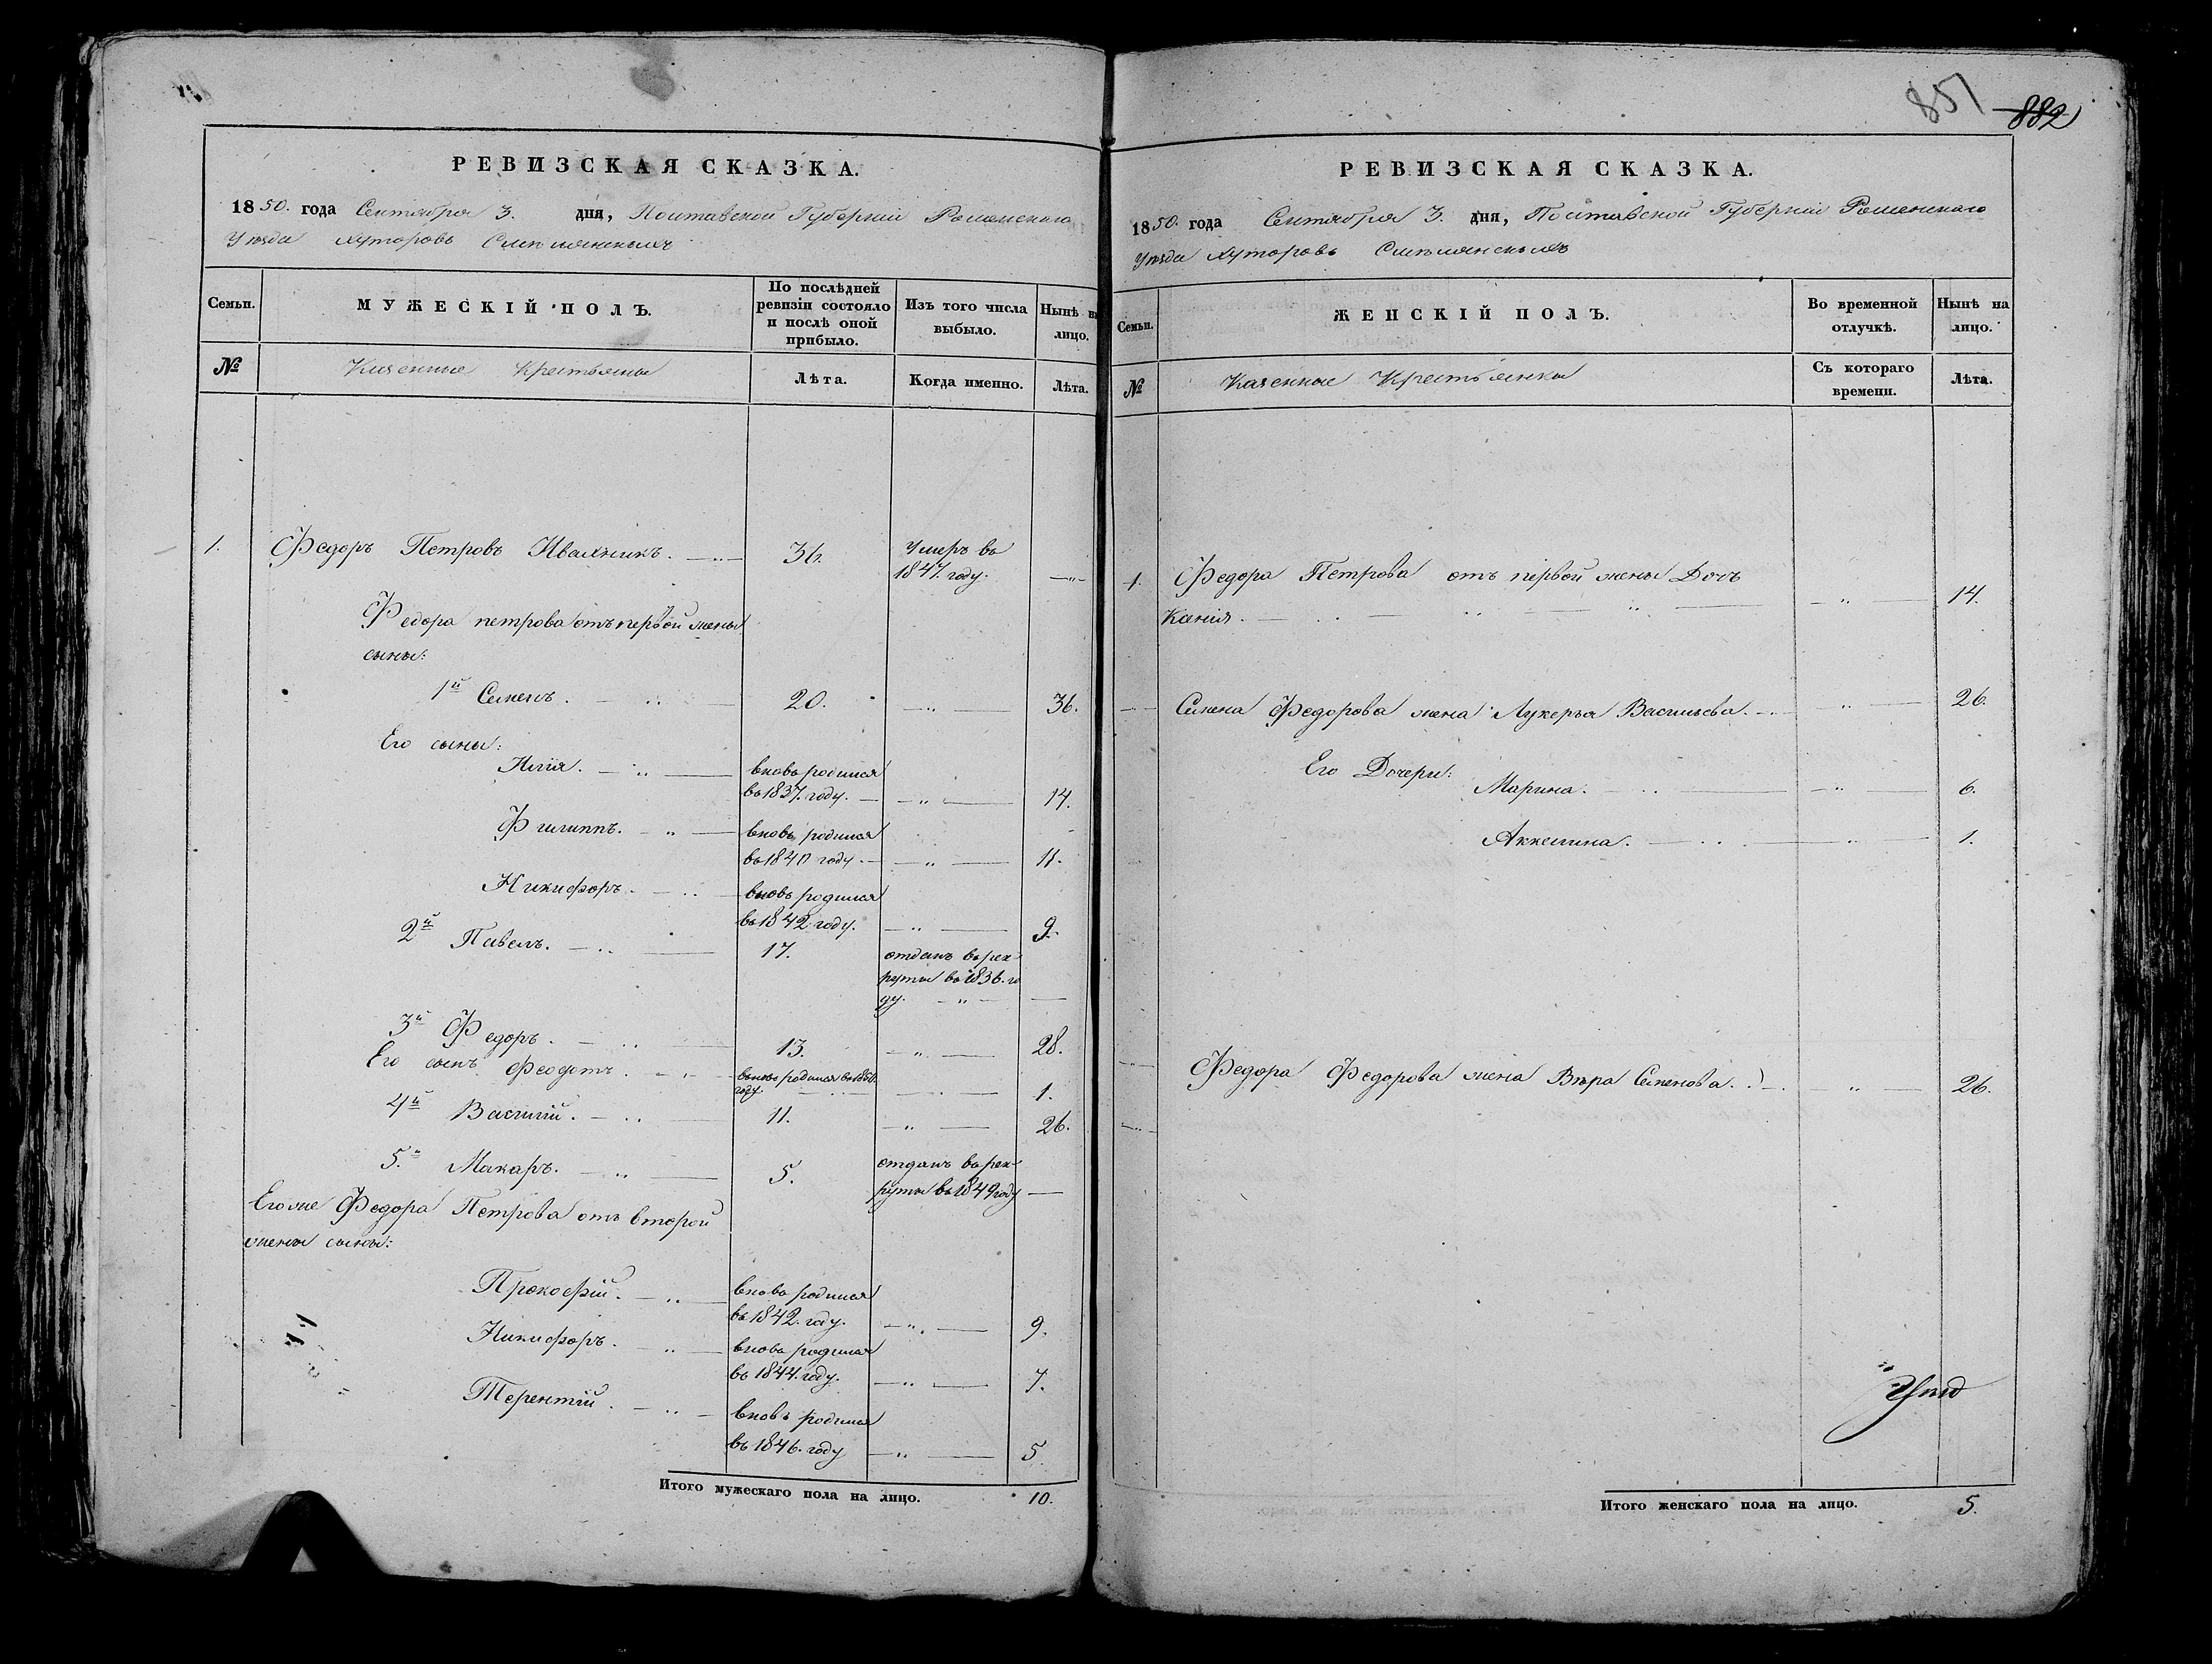 РЕВИЗСКАЯ СКАЗКА.
1850. года Сентября 3. дня, Полтавской Губерніи Роменскаго
Уѣзда Хуторовъ
МУЖЕСКІЙ ПОЛЪ.
Семьи.
По послѣдней ревизіи состояло и послѣ оной прибыло.
Изъ того числа выбыло.
Нынѣ на лицо.
№
Казенные Крестьяны
Лѣта.
Когда именно.
Лѣта.
1. Федоръ Петровъ Ивахникъ. 36. Умеръ въ
1847. году.
Федора петрова отъ первой жены
сыны:
1й Семенъ. 20. 36.
Его сыны:
Илія. вновь родился
въ 1837. году. 14.
Филиппъ. вновь родился
въ 1840 году. 11.
Никифоръ. вновь родился
въ 1842 году. 9.
2й Павелъ. 17. отданъ въ рек-
руты въ 1836. го
ду.
3й Федоръ. 13. 28.
Его сынъ Феодотъ. вновь родился въ 1850.
году. 1.
4й Василій. 11. 26.
5й Макаръ. 5. отданъ въ рек-
руты въ 1849 году
Его же Федора Петрова отъ второй
жены сыны:
Прокофій. вновь родился
въ 1842. году. 9.
Никифоръ. вновь родился
въ 1844. году. 7.
Терентій. вновь родился
въ 1846. году 5.
Итого мужескаго пола на лицо. 10.
851
882
РЕВИЗСКАЯ СКАЗКА.
1850. года Сентября 3. дня, Полтавской Губерніи Роменскаго
Уѣзда Хуторовъ
Семьи.
ЖЕНСКІЙ ПОЛЪ.
Во временной отлучкѣ.
Нынѣ на лицо.
№
Казенные Крестьянки
Съ котораго времени.
Лѣта.
1. Федора Петрова отъ первой жены Дочь
Ксенія. 14.
Семена Федорова жена Лукерья Васильева. 26.
Его Дочери:
Марина. 6.
Аккелина. 1.
Федора Федорова жена Вѣра Семенова. 26.
Итого женскаго пола на лицо. 5.